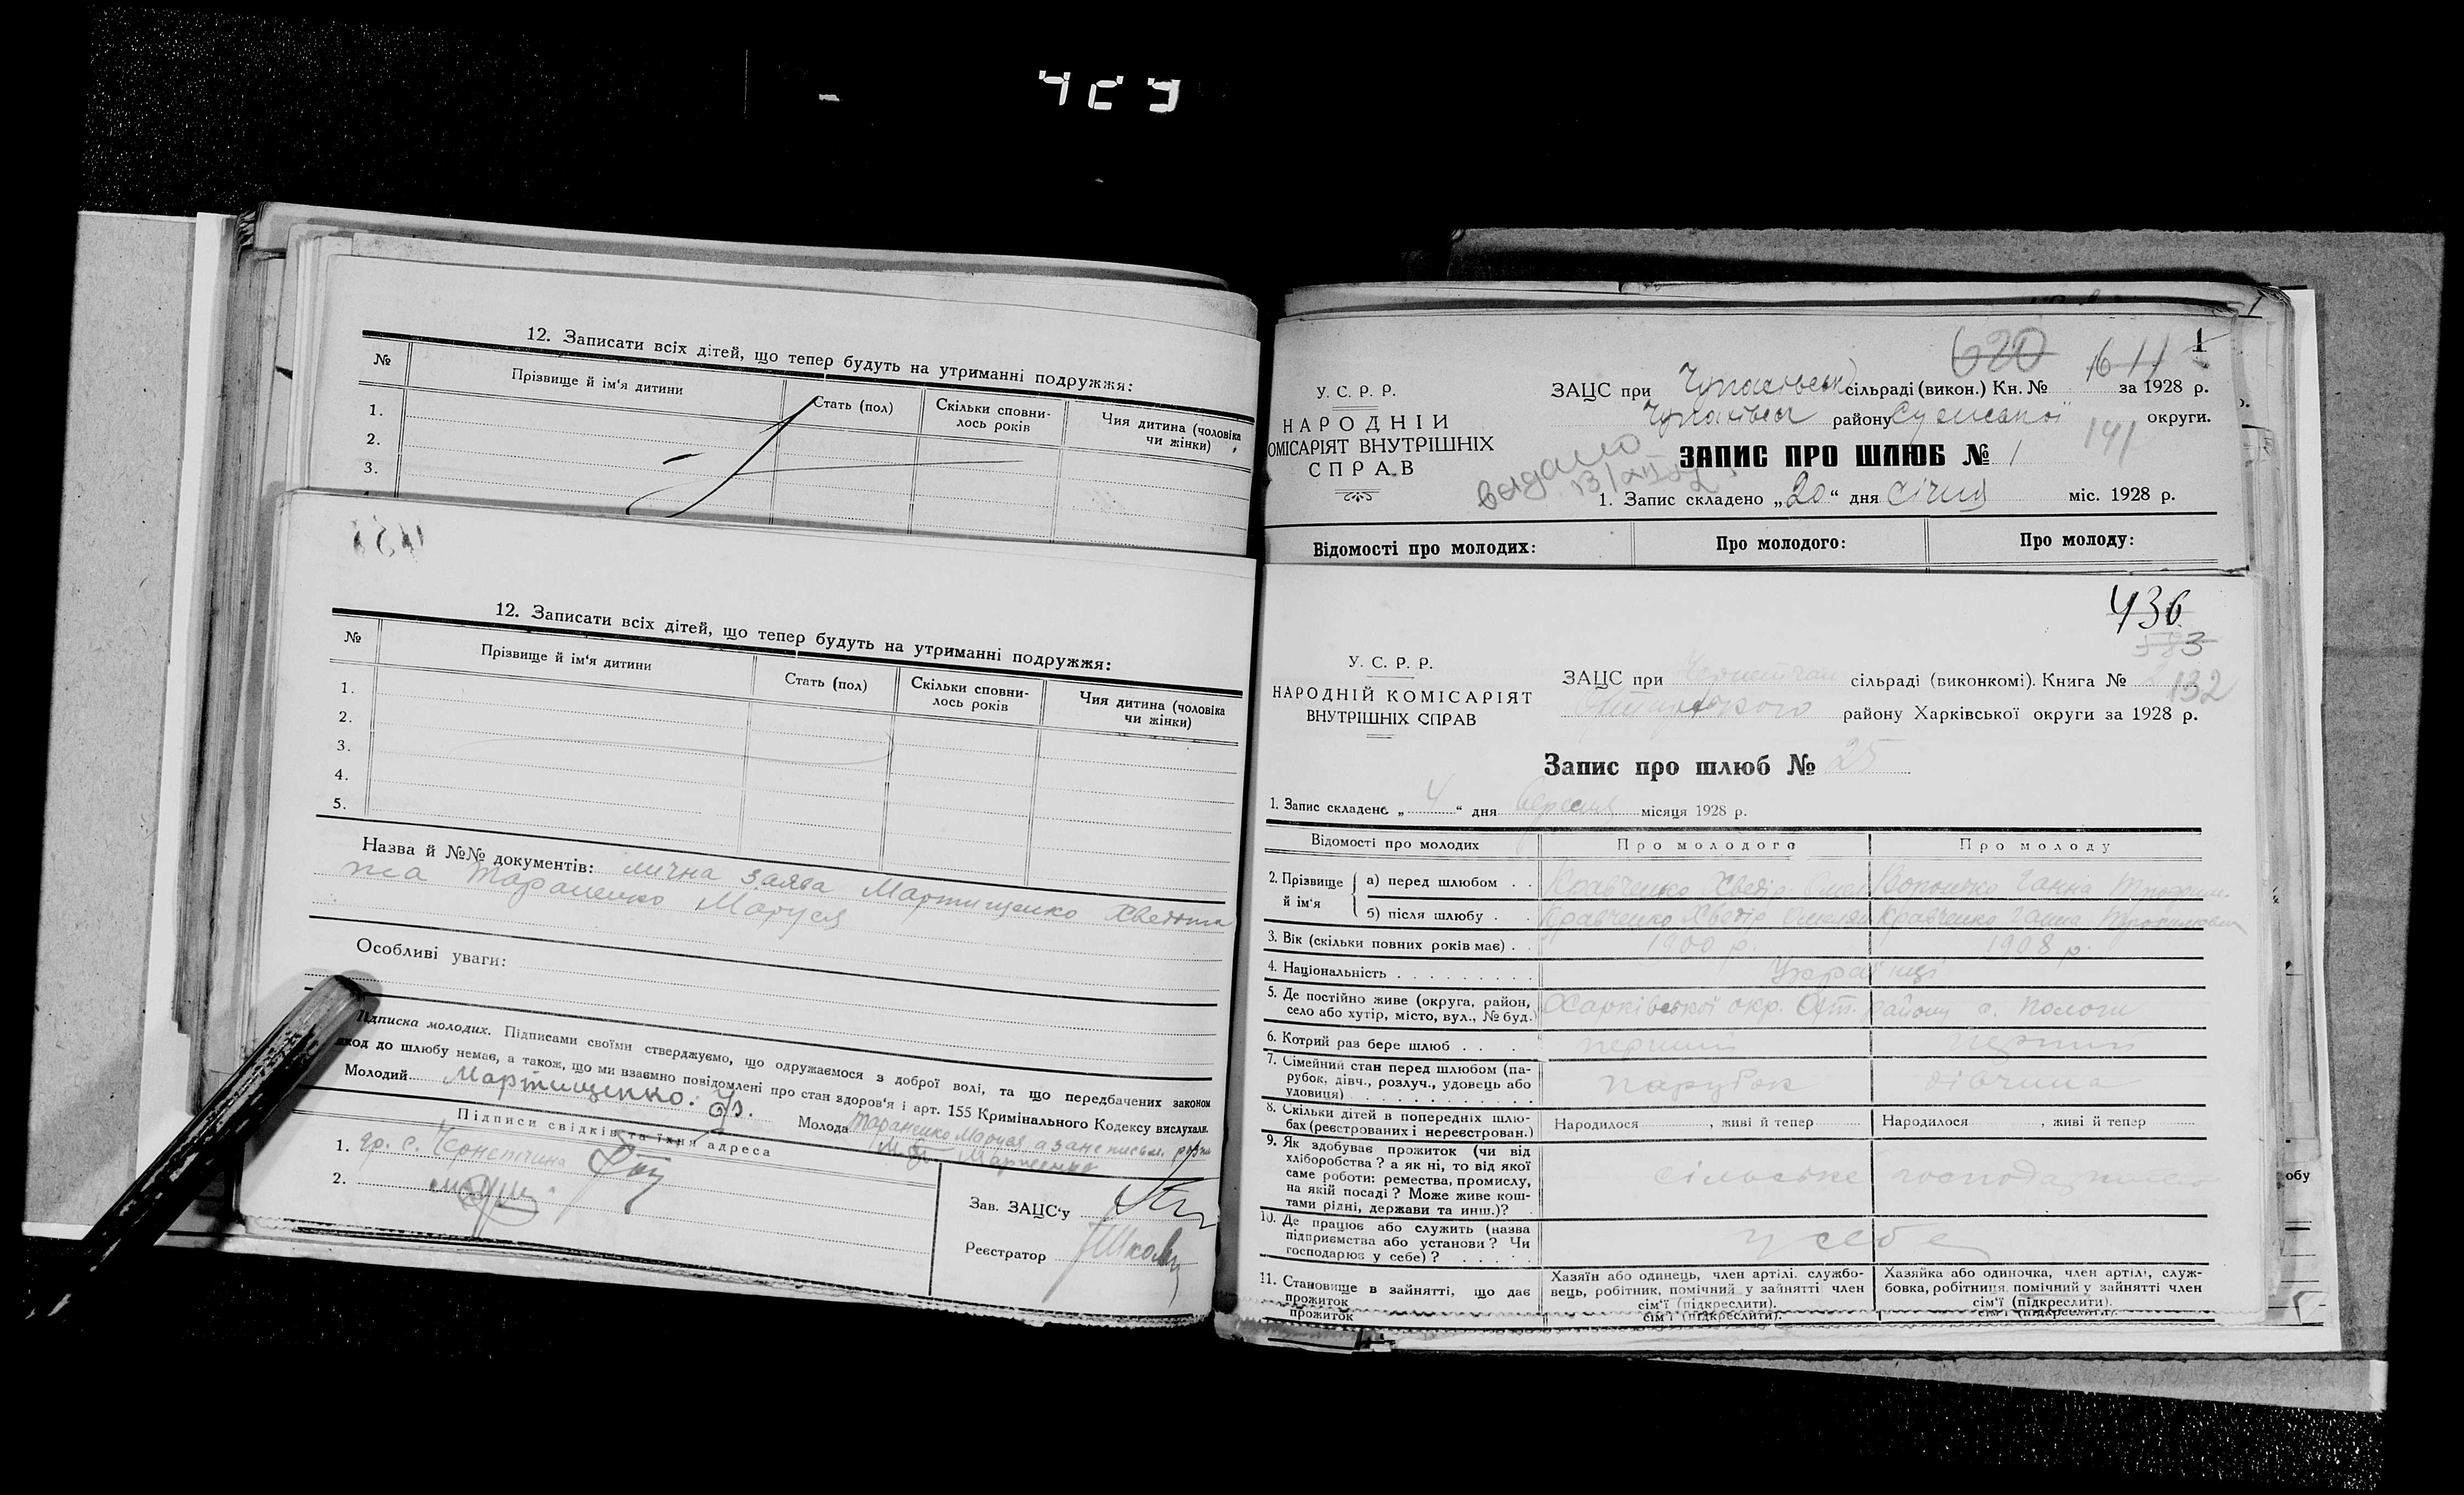 12. Записати всіх дітей, що тепер будуть на утриманні подружжя:
№ Прізвище й ім'я дитини Стать (пол) Скільки сповнилось років Чия дитина (чоловіка чи жінки)
1.
2.
3.
12. Записати всіх дітей, що тепер будуть на утриманні подружжя:
№ Прізвище й ім'я дитини Стать (пол) Скільки сповнилось років Чия дитина (чоловіка чи жінки)
1.
2.
3.
4.
5.
Назва й №№ документів: лична заява Мартищенко Хведота
та Тараненко Маруся
Особливі уваги:
Підписка молодих. Підписами своїми стверджуємо, що одружаємося з доброї волі, та що передбачених законом
шкод до шлюбу немає, а також, що ми взаємно повідомлені про стан здоров'я і арт. 155 Кримінального Кодексу вислухали.
Молодий Мартищенко. Молода Тараненко Маруся а за не письм.
Підписи свідків та їхня адреса
1. гр. с. Чернетчина
2.
Зав. ЗАЦС'у
Реєстратор
У. С. Р. Р.
НАРОДНІЙ
ОМІСАРІЯТ ВНУТРІШНІХ
СПРАВ
620 1
ЗАЦС при Чупахівськ сільраді (викон.) Кн. № за 1928 р.
Чупахівськ району Сумської округи.
141
ЗАПИС ПРО ШЛЮБ № 1
видано
1. Запис складено „20“ дня січня міс. 1928 р.
Відомості про молодих: Про молодого: Про молоду:
436
583
132
У. С. Р. Р.
НАРОДНІЙ КОМІСАРІЯТ
ВНУТРІШНІХ СПРАВ
ЗАЦС при Чернетчан сільраді (виконкомі). Книга № 2
району Харківської округи за 1928 р.
Запис про шлюб № 25
1. Запис складено „4“ дня вересня місяця 1928 р.
Відомості про молодих Про молодого Про молоду
2. Прізвище й ім'я
а) перед шлюбом . . Кравченко Хведір Омел Ганна
б) після шлюбу . . Кравченко Хведір Кравченко Ганна
3. Вік (скільки повних років має) . . 1900 р. 1908 р.
4. Національність . . . . . . . . . Українці
5. Де постійно живе (округа, район, село або хутір, місто, вул., № буд.) Харківської окр. Охт. району с. Пологи
6. Котрий раз бере шлюб . . . перший перший
7. Сімейний стан перед шлюбом (парубок, дівч., розлуч., удовець або удовиця) . . . парубок дівчина
8. Скільки дітей в попередніх шлюбах (реєстрованих і нереєстрован.) Народилося , живі й тепер Народилося , живі й тепер
9. Як здобуває прожиток (чи від хліборобства? а як ні, то від якої саме роботи: ремества, промислу, на якій посаді? Може живе коштами рідні, держави та инш.)? сільське господарство
10. Де працює або служить (назва підприємства або установи? Чи господарює у себе)? . . . . у себе
11. Становище в зайнятті, що дає прожиток Хазяїн або одинець, член артілі, службовець, робітник, помічний у зайнятті член сім'ї (підкреслити). Хазяйка або одиночка, член артілі, службовка, робітниця, помічний у зайнятті член сім'ї (підкреслити).
прожиток сім'ї (підкреслити). сім'ї (підкреслити).
обу